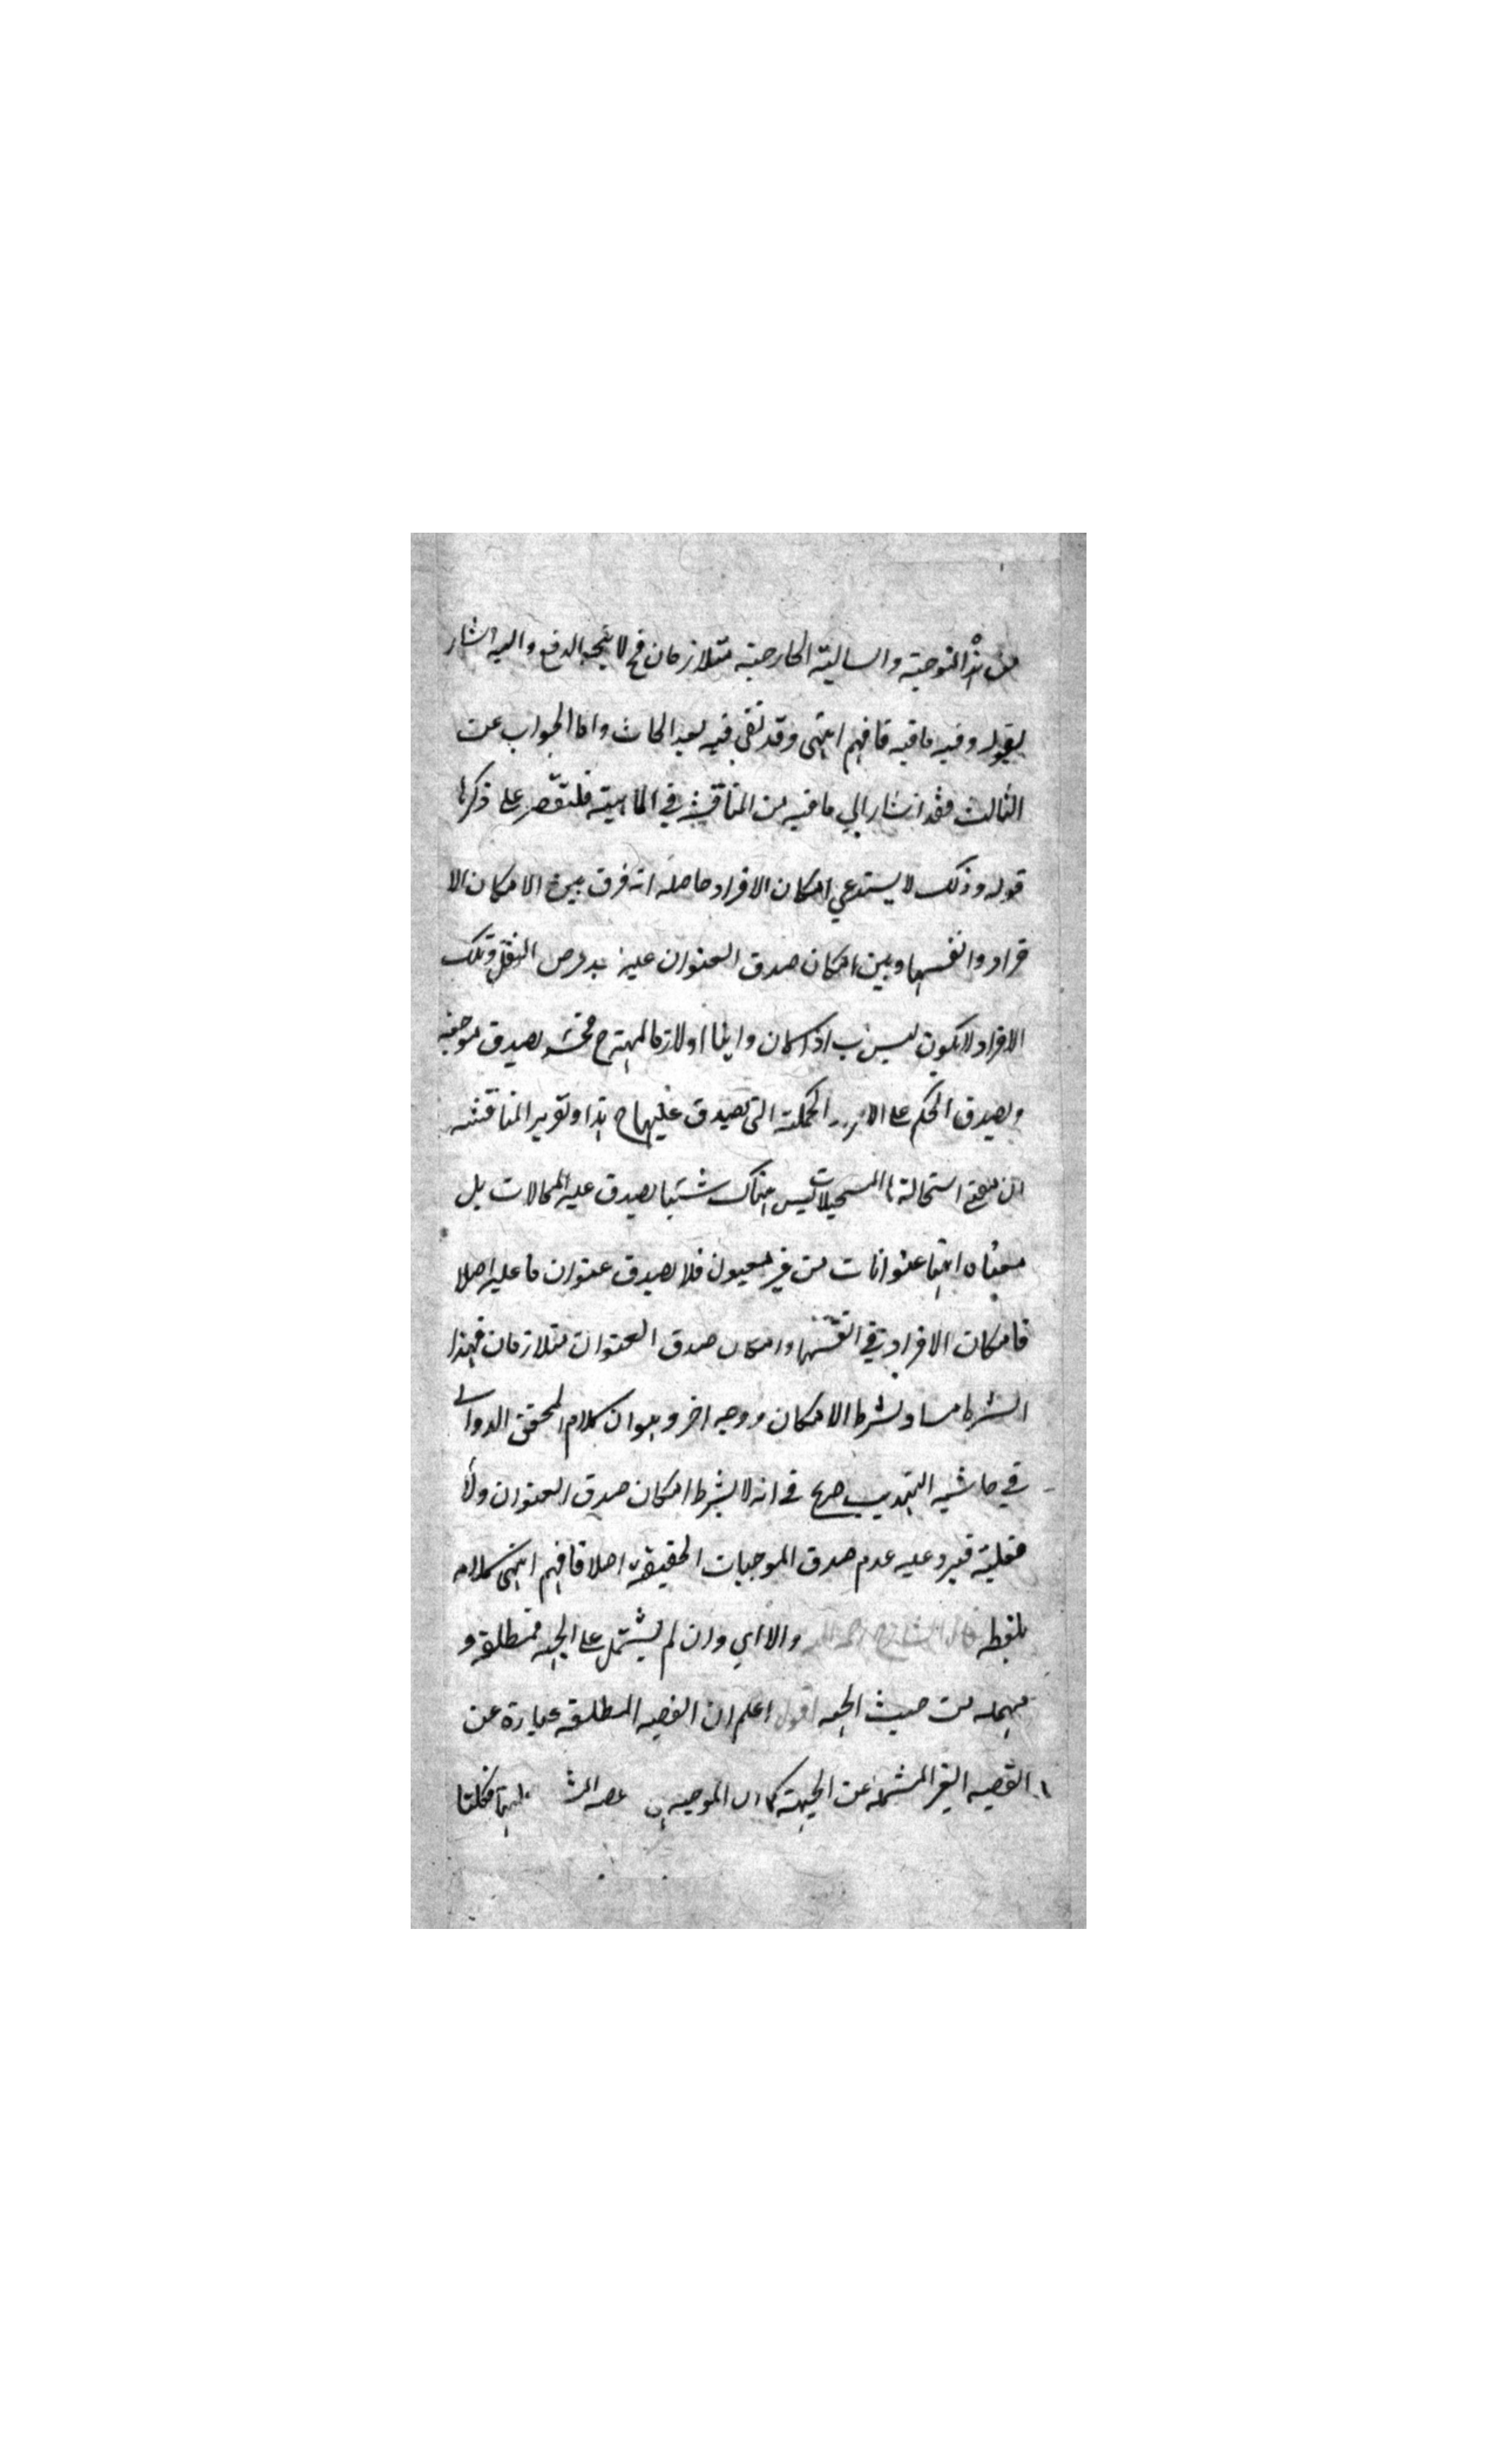 من هذا الموجبة والسالبة الخارجية متلازمان فح لا يتجه الدفع واليه اشار
بقوله وفيه ما فيه فافهم انتهى وقد بقى فيه بعد ابحاث واما الجواب عن
الثالث فقد اشار الي ما فيه من المناقشة في الماهية فلنقتصر على ذكرها
قوله وذلك لا يستدعي امكان الافراد حاصله انه فرق بين الامكان الا
فراد وانفسها وبين امكان صدق العنوان عليه الفعل وتلك
الافراد لا يكون اولازما يصدق موجبة
ويصدق الحكم على التي يصدق عليها ح هذا وتقرير المناقشة
ان معنى استحالة المستحيلات ليس هناك شيئا يصدق عليه المحالات بل
معناه انها عنوانات من غير معنون فلا يصدق عنوان ما عليه اصلا
فامكان الافراد في انفسها وامكان صدق العنوان متلازمان فهذا
الشرط مساو لشرط الامكان ووجه اخر وهو ان كلام المحقق الدواني
في حاشية التهذيب صريح في انه لا يشترط امكان صدق العنوان ولا
فعلية فيرد عليه عدم صدق الموجبات الحقيقة اصلا فافهم انتهى كلامه
بلفظه قال الشارح رحمه الله والا اي وان لم يشتمل على الجهة فمطلقة و
مهملة من حيث الجهة اقول اعلم ان القضيه المطلقة عبارة عن
القضيه الغير المشتملة عن الجهة كما ان الموجهة فكلتا